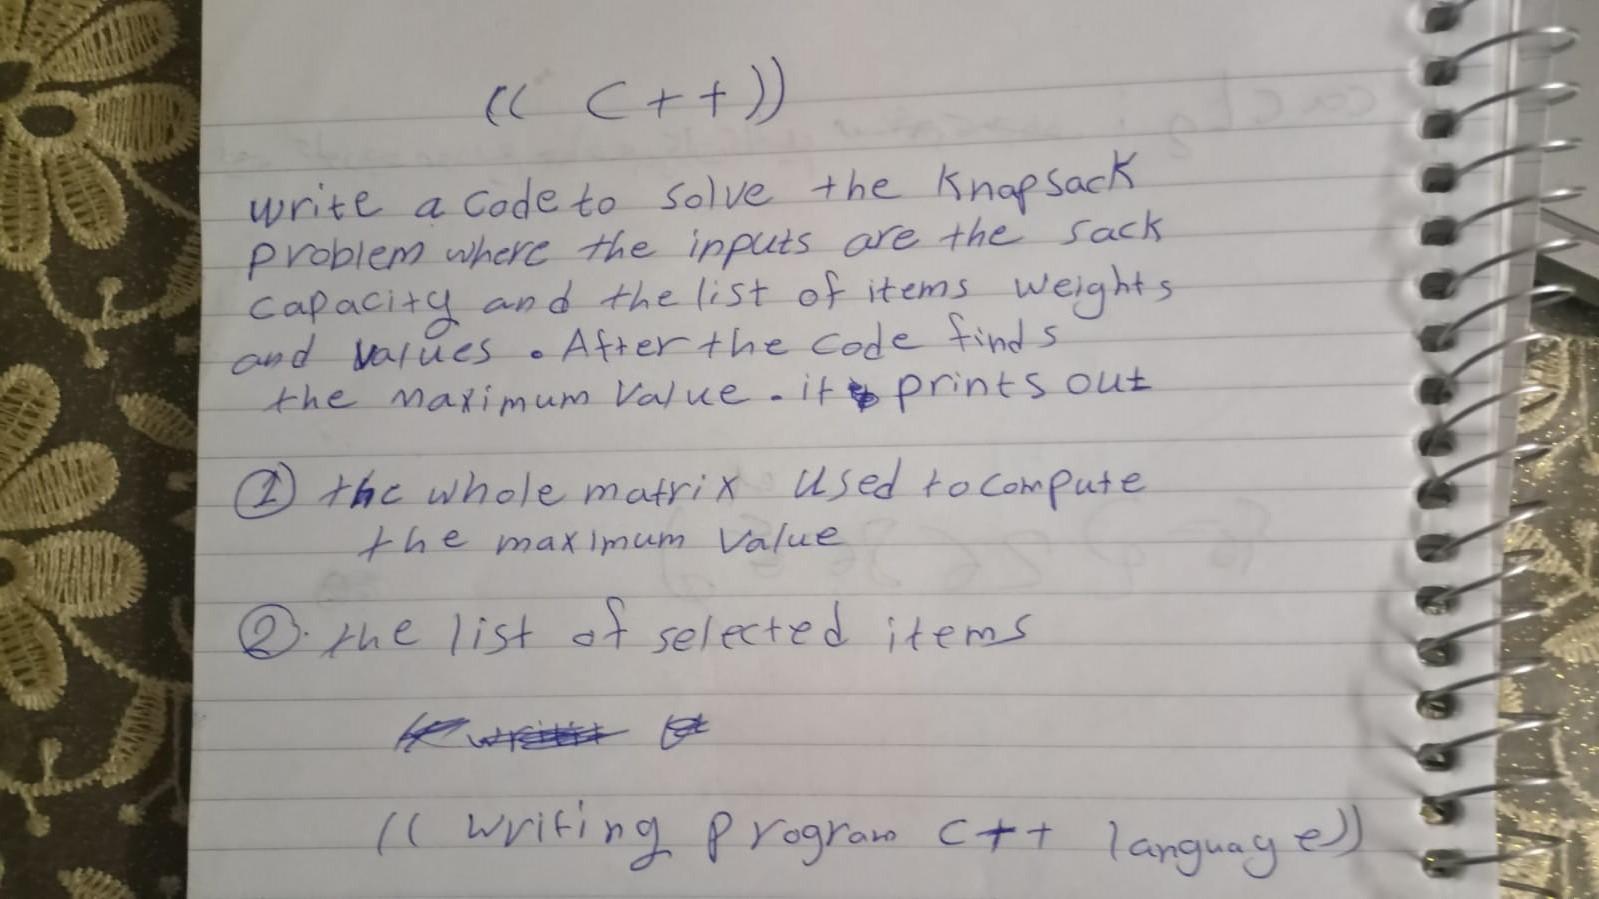 (( C++))
write a code to solve the Knapsack
problem where the inputs are the sack
capacity and the list of items weights
and values. After the code finds
the maximum value. it prints out
① the whole matrix used to compute
the maximum value
②. the list of selected items
(( writing program c++ language))